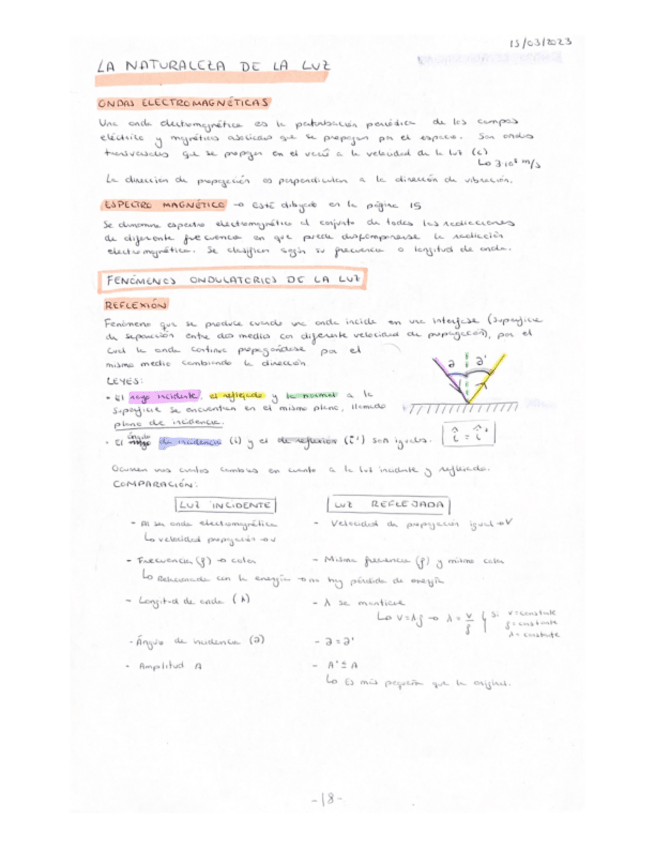 15/03/2023
LA NATURALEZA DE LA LUZ
ONDAS ELECTROMAGNÉTICAS
Una onda electromagnética es la perturbación periódica de los campos
eléctrico y magnético asociados que se propagan por el espacio. Son ondas
transversales que se propagan en el vacío a la velocidad de la luz (c)
↳ 3·10⁸ m/s
La dirección de propagación es perpendicular a la dirección de vibración.
ESPECTRO MAGNÉTICO → está dibujado en la página 15
Se denomina espectro electromagnético al conjunto de todas las radiaciones
de diferente frecuencia en que puede descomponerse la radiación
electromagnética. Se clasifican según su frecuencia o longitud de onda.
FENÓMENOS ONDULATORIOS DE LA LUZ
REFLEXIÓN
Fenómeno que se produce cuando una onda incide en una interfase (superficie
de separación entre dos medios con diferente velocidad de propagación), por el
cual la onda continua propagándose por el
mismo medio cambiando la dirección.
∂ ∂'
LEYES:
· El rayo incidente, el reflejado y la normal a la
superficie se encuentran en el mismo plano, llamado
plano de incidencia.
· El ángulo de incidencia (i) y el de reflexión (i') son iguales. î = î'
Ocurren unos cuantos cambios en cuanto a la luz incidente y reflejada.
COMPARACIÓN:
LUZ INCIDENTE LUZ REFLEJADA
- Al ser onda electromagnética - Velocidad de propagación igual → v
↳ velocidad propagación → v
- Frecuencia (f) → color - Misma frecuencia (f) y mismo color
↳ Relacionada con la energía → no hay pérdida de energía
- Longitud de onda (λ) - λ se mantiene
↳ v=λf → λ = v/f { Si v=constante
f=constante
λ=constante
- Ángulo de incidencia (∂) - ∂=∂'
- Amplitud A - A' ≤ A
↳ Es más pequeña que la original.
-18-